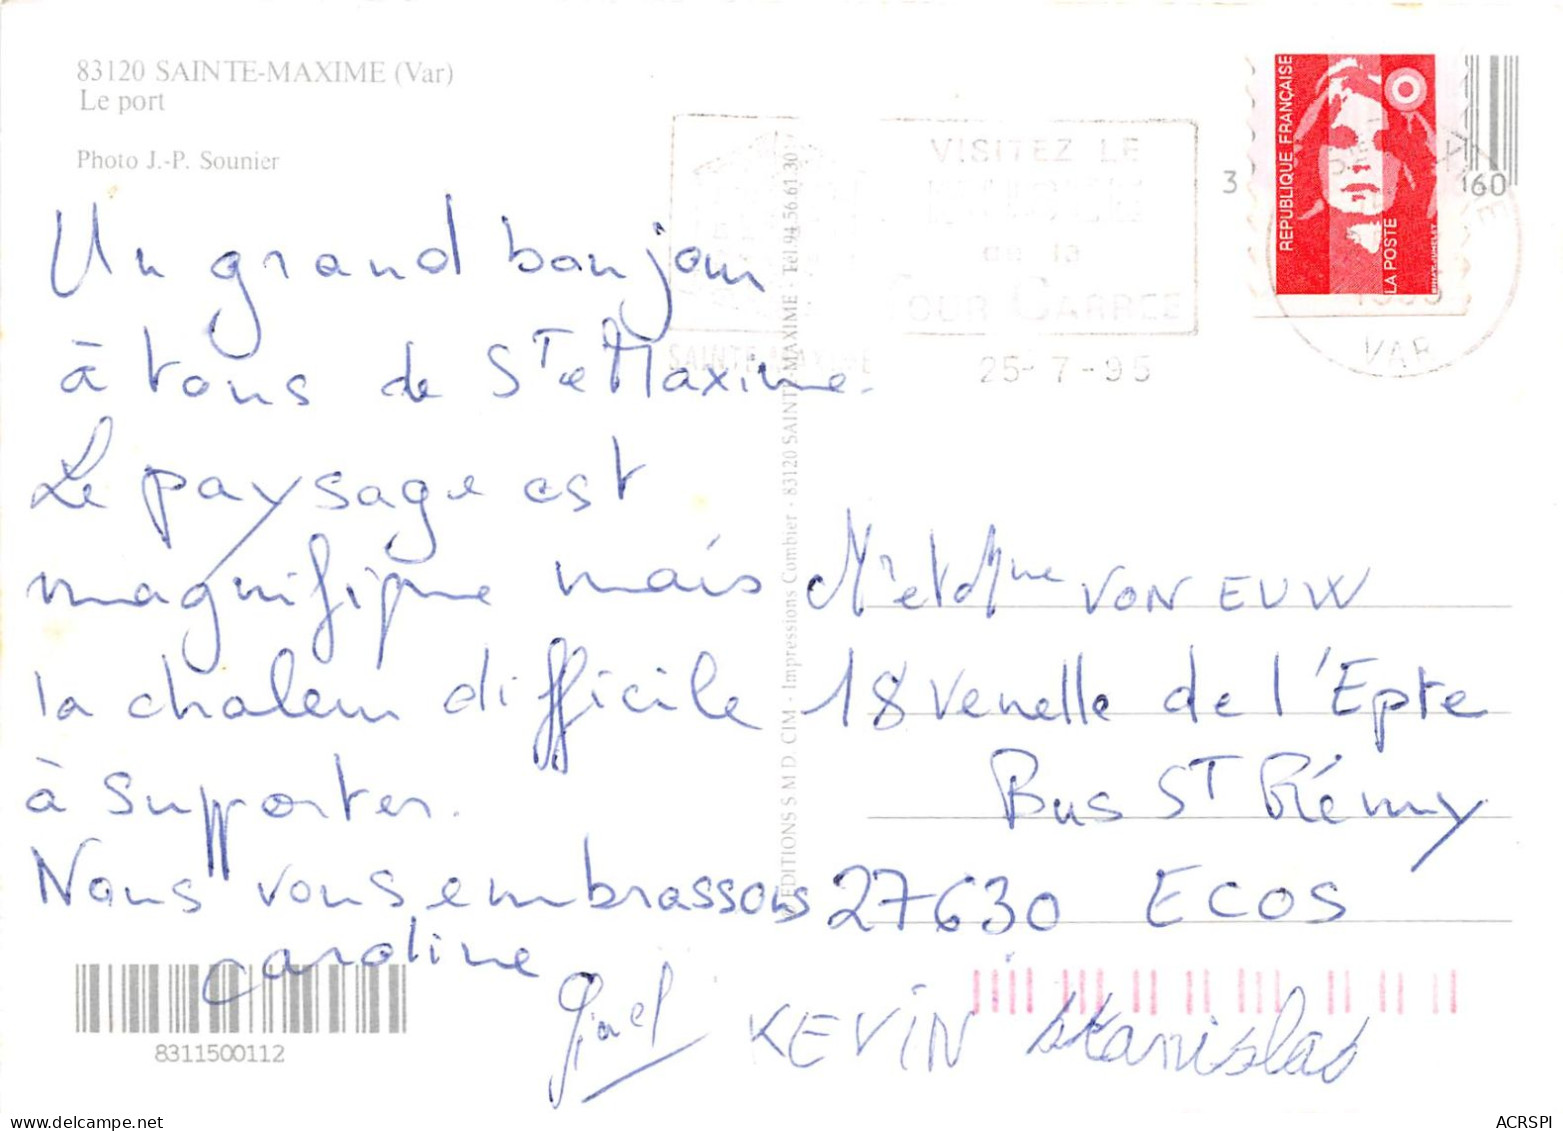 83120 SAINTE-MAXIME (Var)
Le port
Photo J.-P. Sounier
Un grand bonjour
à tous de Ste Maxime.
Le paysage est
magnifique mais
la chaleur difficile
à supporter.
Nous vous embrassons
Caroline
KEVIN Stanislas
8311500112
© EDITIONS S M D. CIM - Impressions Combier - 83120 SAINTE-MAXIME - Tél. 94.56.61.30
VISITEZ LE
de la
TOUR CARREE
SAINTE-MAXIME
25-7-95
VAR
REPUBLIQUE FRANÇAISE
LA POSTE
3
160
Mr et Mme VON EUW
18 Venelle de l'Epte
Bus ST Rémy
27630 ECOS
ACRSPI
delcampe.net